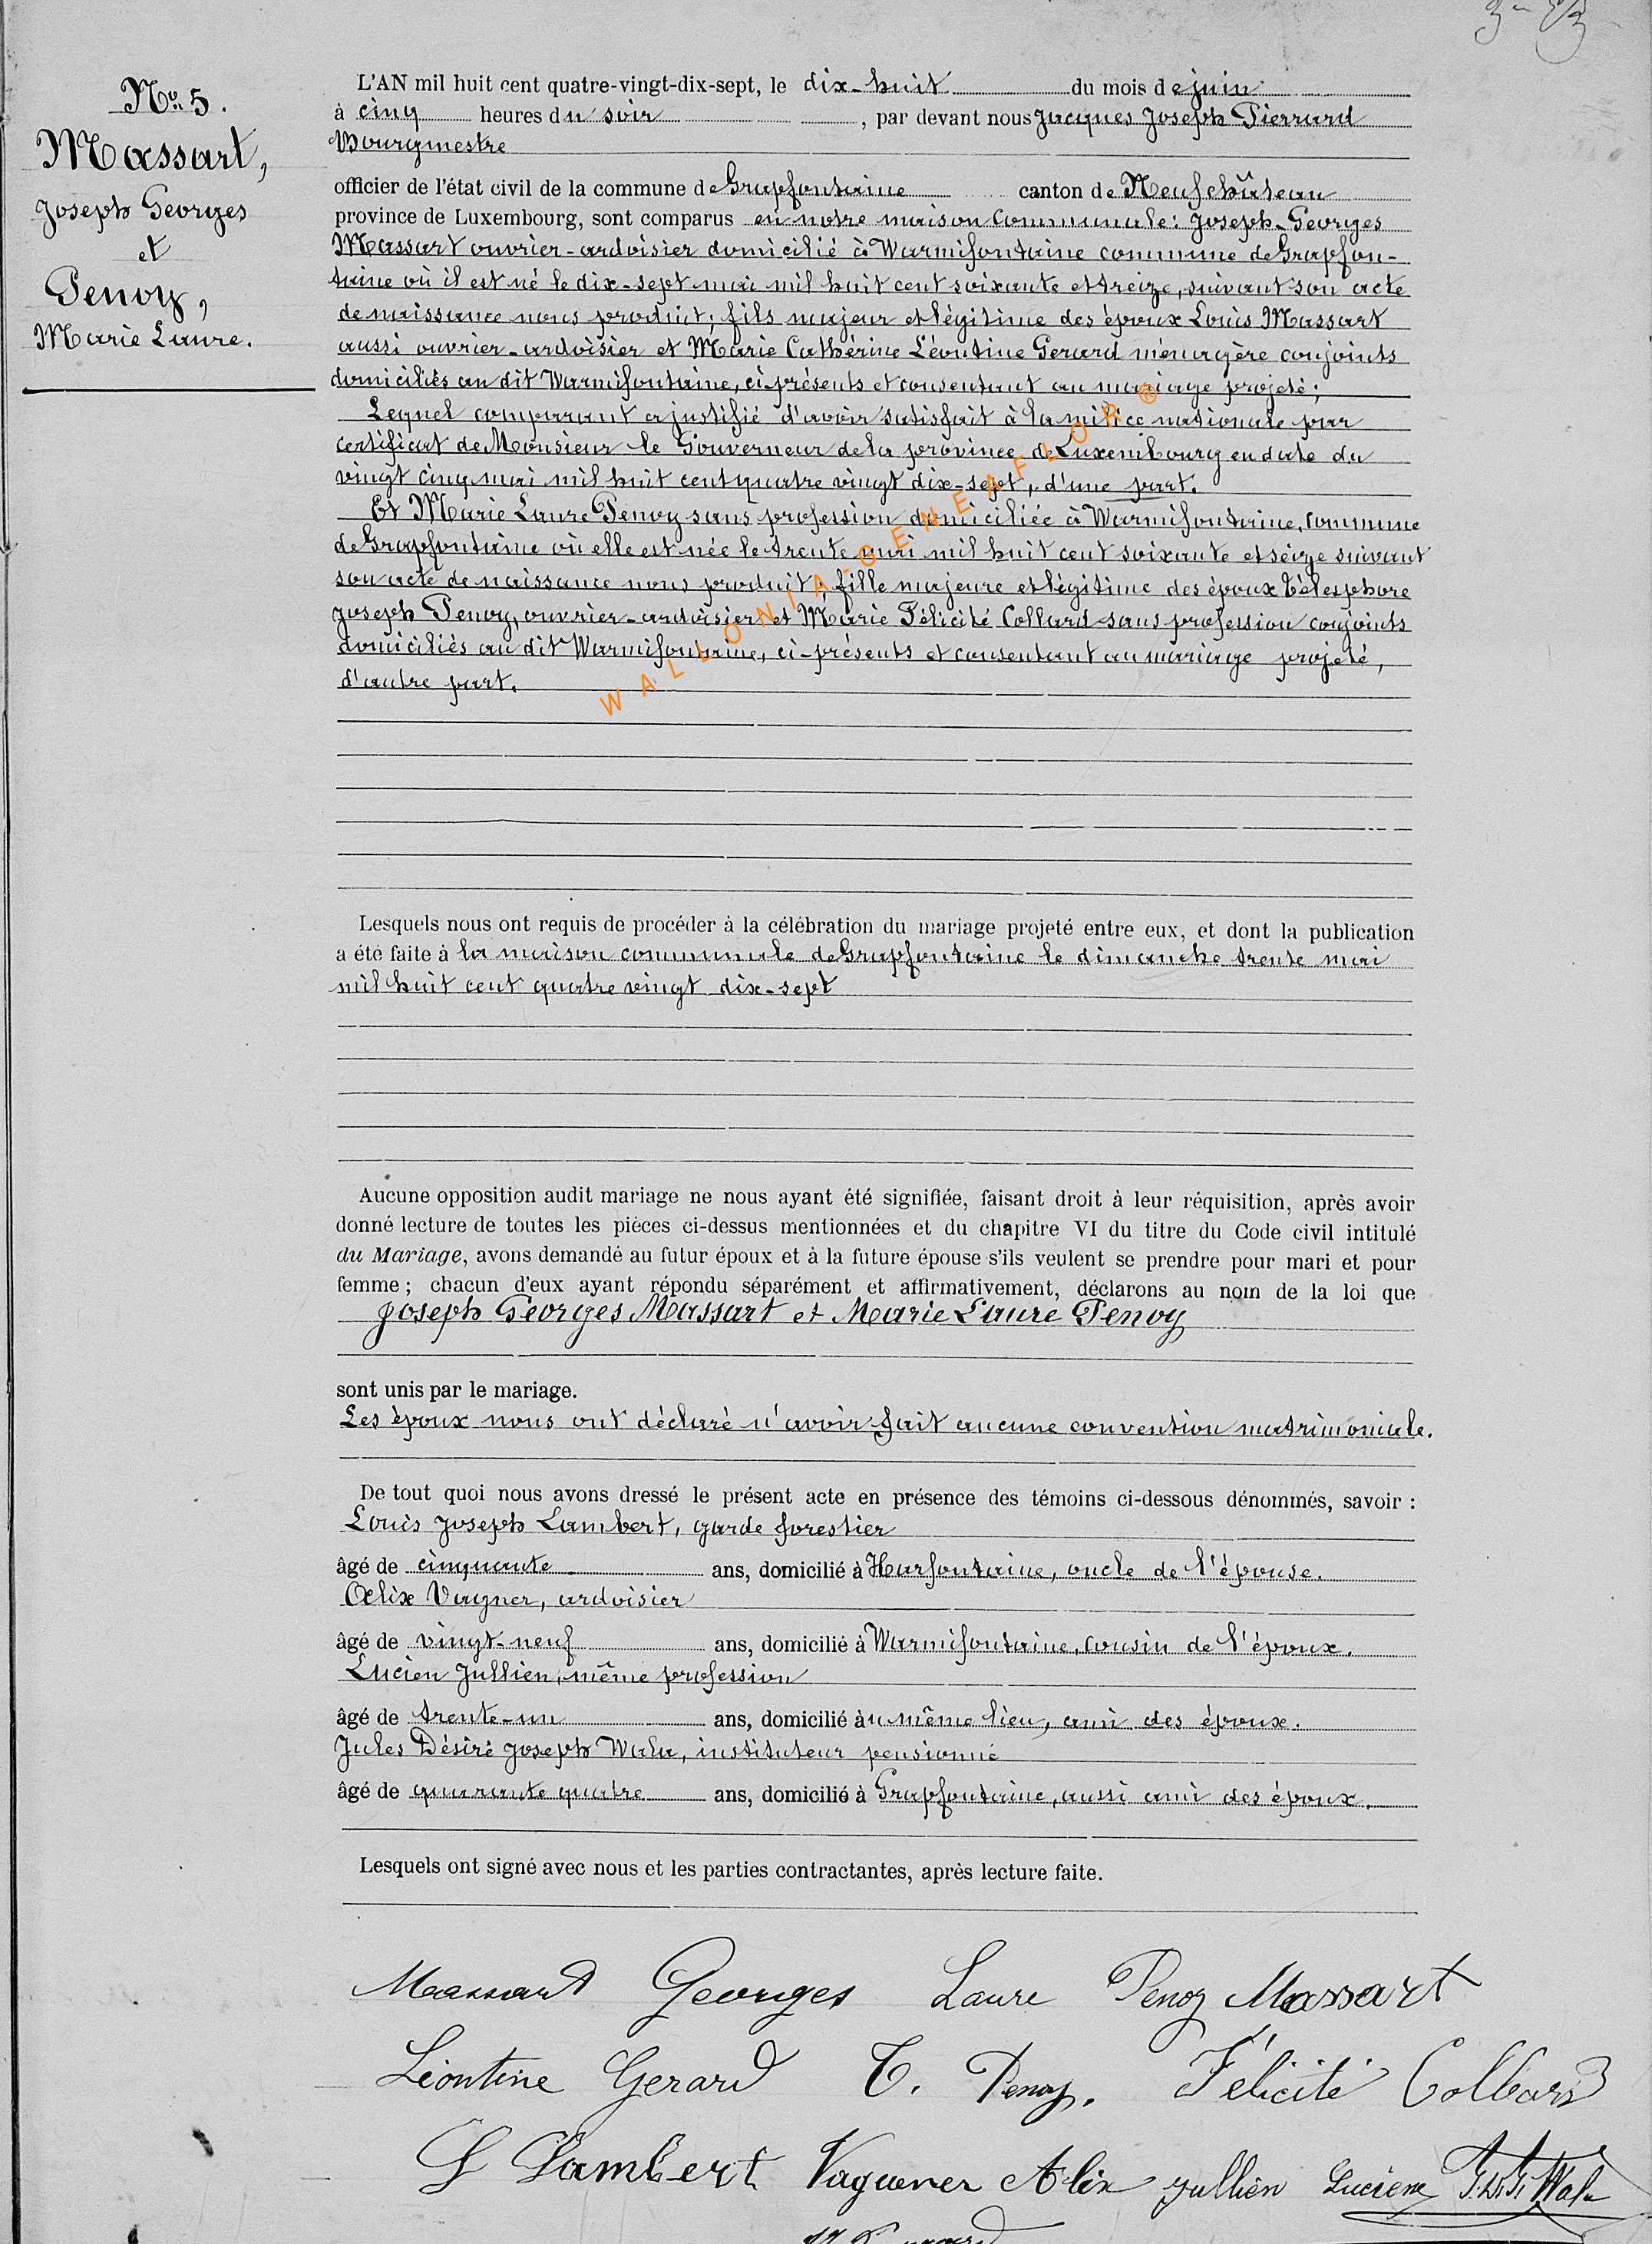 No. 5.
Massart,
Joseph Georges
et
Penoy,
Marie Laure.
L'AN mil huit cent quatre-vingt-dix-sept, le dix-huit du mois de juin
à cinq heures du soir, par devant nous Jacques Joseph Pierrard
Bourgmestre
officier de l'état civil de la commune de Grapfontaine canton de Neufchâteau
province de Luxembourg, sont comparus en notre maison Communale: Joseph-Georges
Massart ouvrier-ardoisier domicilié à Warmifontaine commune de Grapfon-
taine où il est né le dix-sept mai mil huit cent soixante et treize, suivant son acte
de naissance nous produit; fils majeur et légitime des époux Louis Massart
aussi ouvrier-ardoisier et Marie Cathérine Léontine Gerard ménagère conjoints
domiciliés au dit Warmifontaine, ci-présents et consentant au mariage projeté;
Lequel comparant a justifié d'avoir satisfait à la milice nationale par
certificat de Monsieur le Gouverneur de la province de Luxembourg en date du
vingt cinq mai mil huit cent quatre vingt dix-sept, d'une part.
Et Marie Laure Penoy sans profession domiciliée à Warmifontaine, commune
de Grapfontaine où elle est née le trente mai mil huit cent soixante et seize suivant
son acte de naissance nous produit; fille majeure et légitime des époux Télesphore
Joseph Penoy, ouvrier-ardoisier et Marie Félicité Collard sans profession conjoints
domiciliés au dit Warmifontaine, ci-présents et consentant au mariage projeté,
d'autre part.
WALLONIA-GENEAFLOR ®
Lesquels nous ont requis de procéder à la célébration du mariage projeté entre eux, et dont la publication
a été faite à la maison communale de Grapfontaine le dimanche trente mai
mil huit cent quatre vingt dix-sept
Aucune opposition audit mariage ne nous ayant été signifiée, faisant droit à leur réquisition, après avoir
donné lecture de toutes les pièces ci-dessus mentionnées et du chapitre VI du titre du Code civil intitulé
du Mariage, avons demandé au futur époux et à la future épouse s'ils veulent se prendre pour mari et pour
femme ; chacun d'eux ayant répondu séparément et affirmativement, déclarons au nom de la loi que
Joseph Georges Massart et Marie Laure Penoy
sont unis par le mariage.
Les époux nous ont déclaré n'avoir fait aucune convention matrimoniale.
De tout quoi nous avons dressé le présent acte en présence des témoins ci-dessous dénommés, savoir :
Louis Joseph Lambert, garde forestier
âgé de cinquante ans, domicilié à Harfontaine, oncle de l'épouse.
Alix Vagner, ardoisier
âgé de vingt-neuf ans, domicilié à Warmifontaine, cousin de l'époux.
Lucien Jullien, même profession
âgé de trente-un ans, domicilié au même lieu, ami des époux.
Jules Désiré Joseph Wala, instituteur pensionné
âgé de quarante quatre ans, domicilié à Grapfontaine, aussi ami des époux.
Lesquels ont signé avec nous et les parties contractantes, après lecture faite.
Massart Georges Laure Penoy Massart
Léontine Gerard T. Penoy. Félicité Collard
L Lambert Vaguener Alix Jullien Lucien J.D.J. Wala